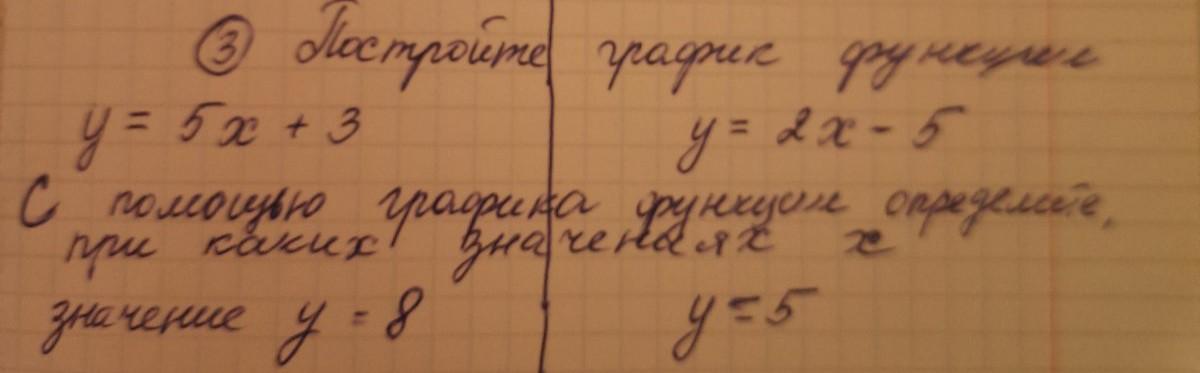 ③ Постройте график функции
y = 5x + 3 y = 2x - 5
С помощью графика функции определите,
при каких значениях x
значение y = 8 y = 5